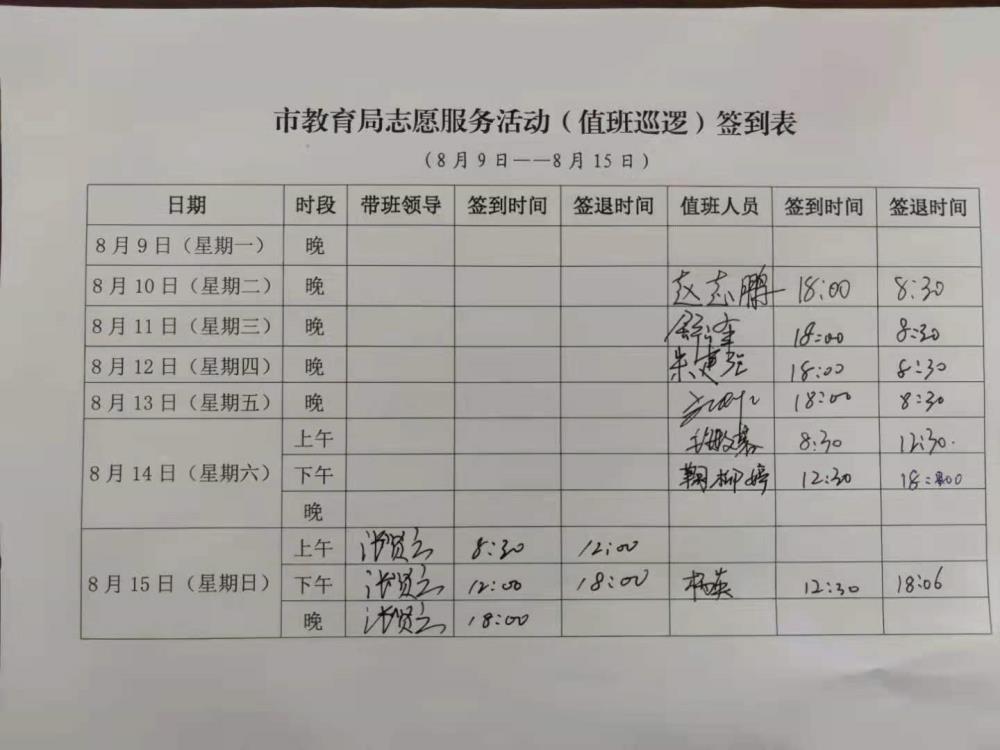 市教育局志愿服务活动（值班巡逻）签到表
（8月9日——8月15日）
日期 时段 带班领导 签到时间 签退时间 值班人员 签到时间 签退时间
8月9日（星期一） 晚
8月10日（星期二） 晚 赵志鹏 18:00 8:30
8月11日（星期三） 晚 18:00 8:30
8月12日（星期四） 晚 朱建强 18:00 8:30
8月13日（星期五） 晚 18:00 8:30
8月14日（星期六） 上午 8:30 12:30.
下午 鞠柳婷 12:30 18:00
晚
8月15日（星期日） 上午 8:30 12:00
下午 12:00 18:00 杨英 12:30 18:06
晚 18:00